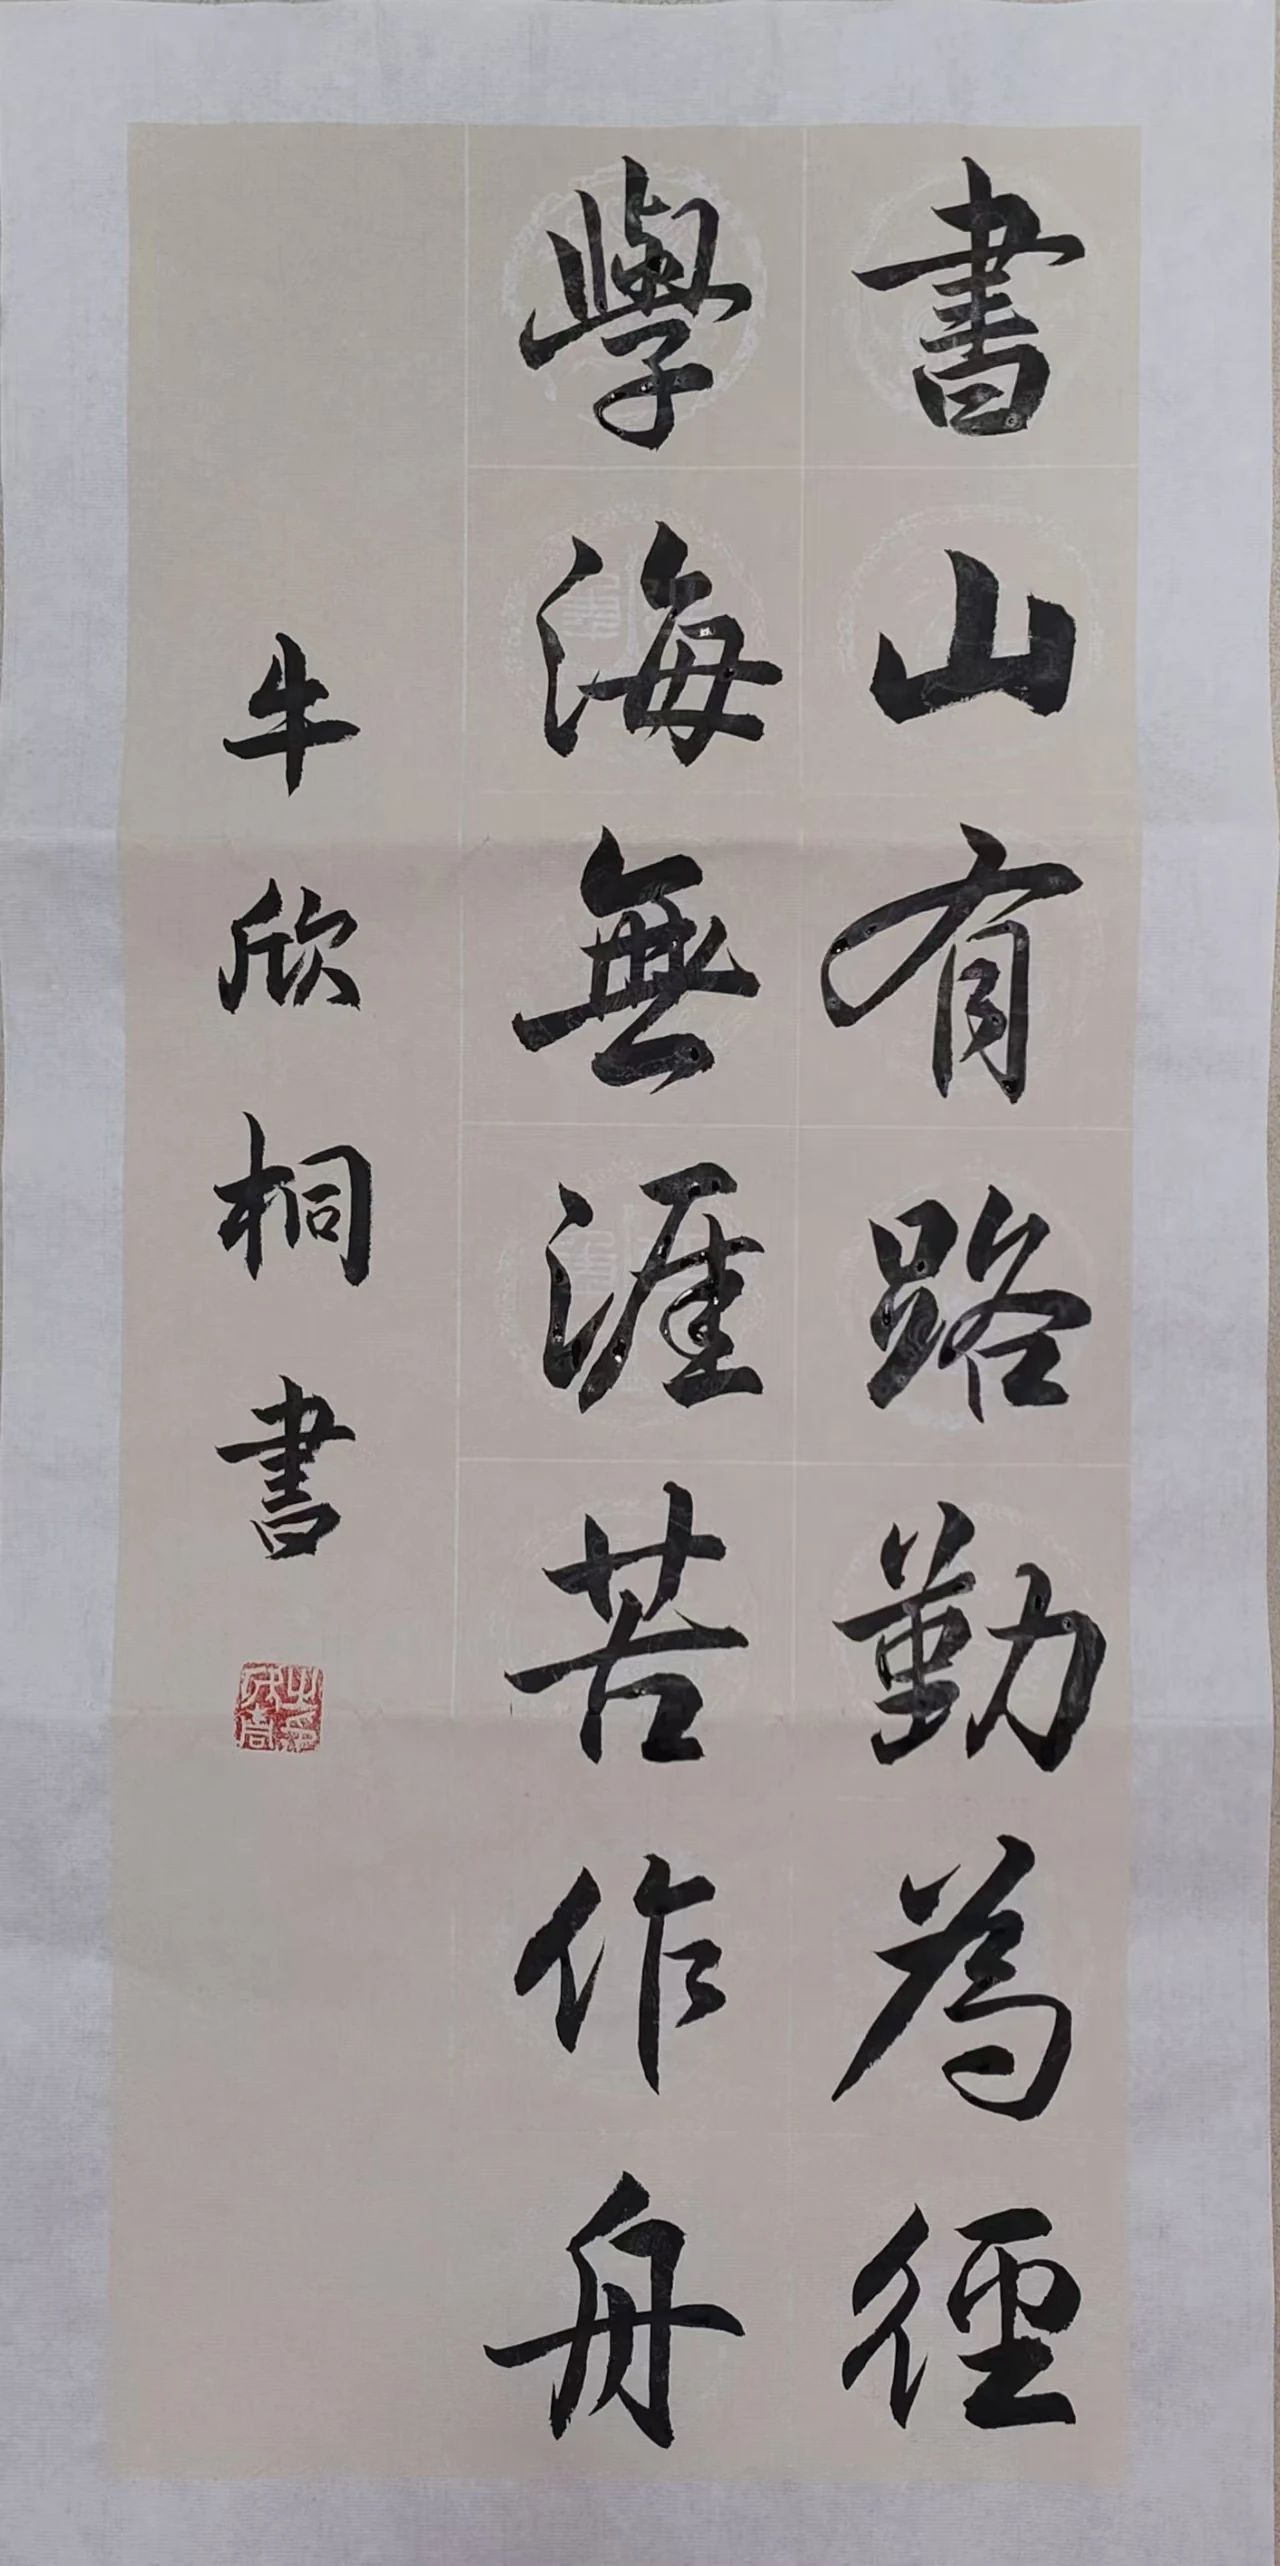 書山有路勤為徑
學海無涯苦作舟
牛欣桐書